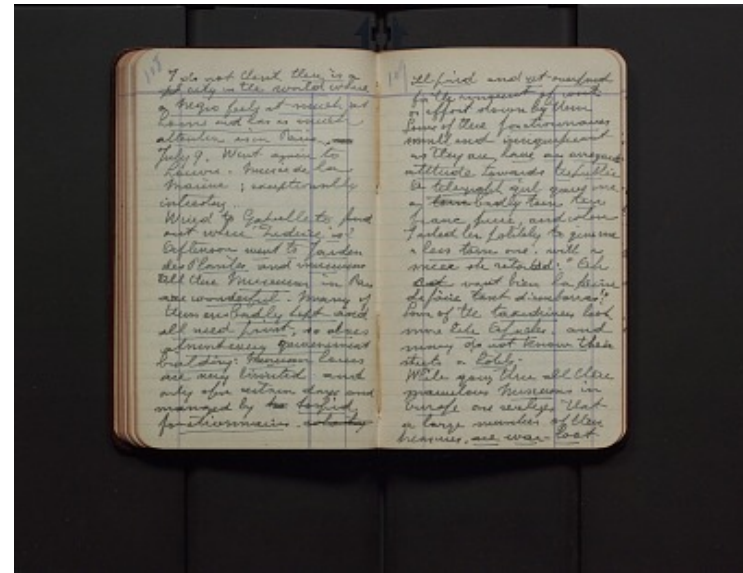 108
I do not think there is a
city in the world where
a Negro feels at much at
home and has as much
attention as in Paris.
July 9. Went again to
Louvre. Musée de la
Marine; exceptionally
interesting.
Wired to Gabrielle to find
out where
Afternoon went to Jardin
des Plantes and museums
All the Museums in Paris
are wonderful. Many of
them are badly kept and
all need paint, so does
almost every government
building. Museum hours
are very limited and
only open certain days and
managed by torpid
fonctionnaires
109
ill paid and yet overpaid
for the
or effort shown by them
Some of these fonctionnaires
small and insignificant
as they are, have an arrogant
attitude towards the public
A telegraph girl gave me
a badly torn ten
franc piece, and when
I asked her politely to give me
a less torn one, with a
she retorted: "Ah
vaut bien la peine
de faire tant d'embarras!"
Some of the taxidrivers look
more like Apaches and
many do not know their
streets or hotels.
While going thru all these
marvelous Museums in
Europe one realizes that
a large number of these
treasures, are war loot